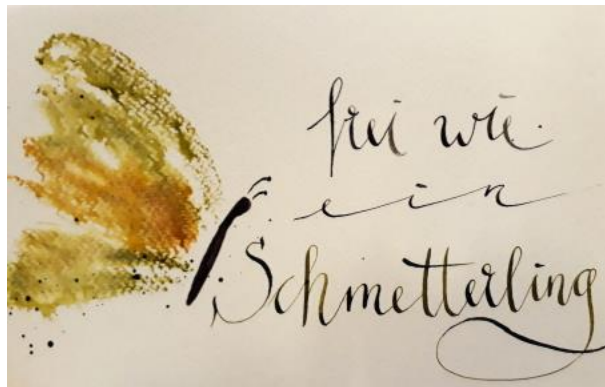 frei wie
ein
Schmetterling